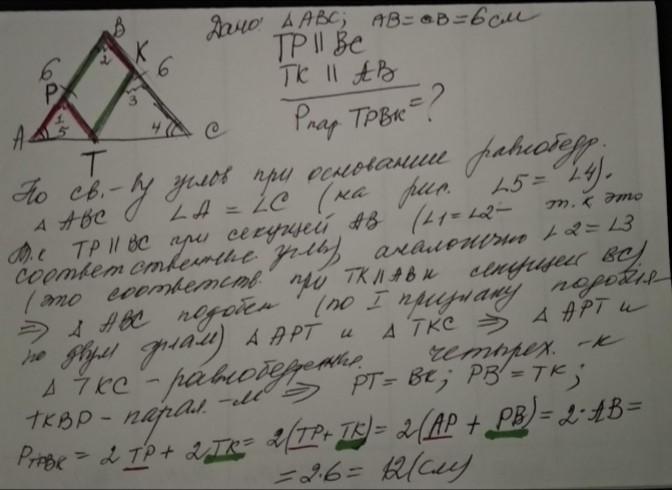 Дано: △ABC; AB=CB=6см
TP || BC
TK || AB
Pпар TPBK=?
B
2
K
6
6
3
P
1
A
5
4
C
T
По св.-ву углов при основание равнобедр.
△ABC ∠A = ∠C (на рис. ∠5 = ∠4).
Т.к TP || BC при секущей AB (∠1=∠2 – т.к это
соответственные углы), аналогично ∠2=∠3
(это соответств. при TK||AB и секущей BC)
⇒ △ABC подобен (по I признаку подобия-
по двум углам) △APT и △TKC ⇒ △APT и
△TKC – равнобедренные. четырех.-к
TKBP – парал.-м ⇒ PT = BK; PB = TK;
PTPBK = 2TP + 2TK = 2(TP + TK) = 2(AP + PB) = 2·AB =
= 2·6 = 12(см)